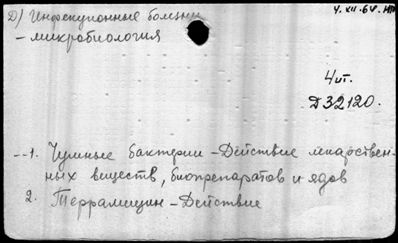 Д) Инфекционные болезни
4. XII. 64. НП
- микробиология
4 ит.
Д32120.
1. Чумные бактерии - Действие лекарствен-
ных веществ, биопрепаратов и ядов
2. Террамицин - Действие